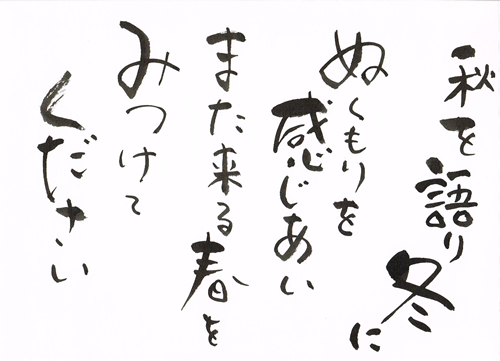 秋を語り
冬に
ぬくもりを
感じあい
また来る春を
みつけて
ください